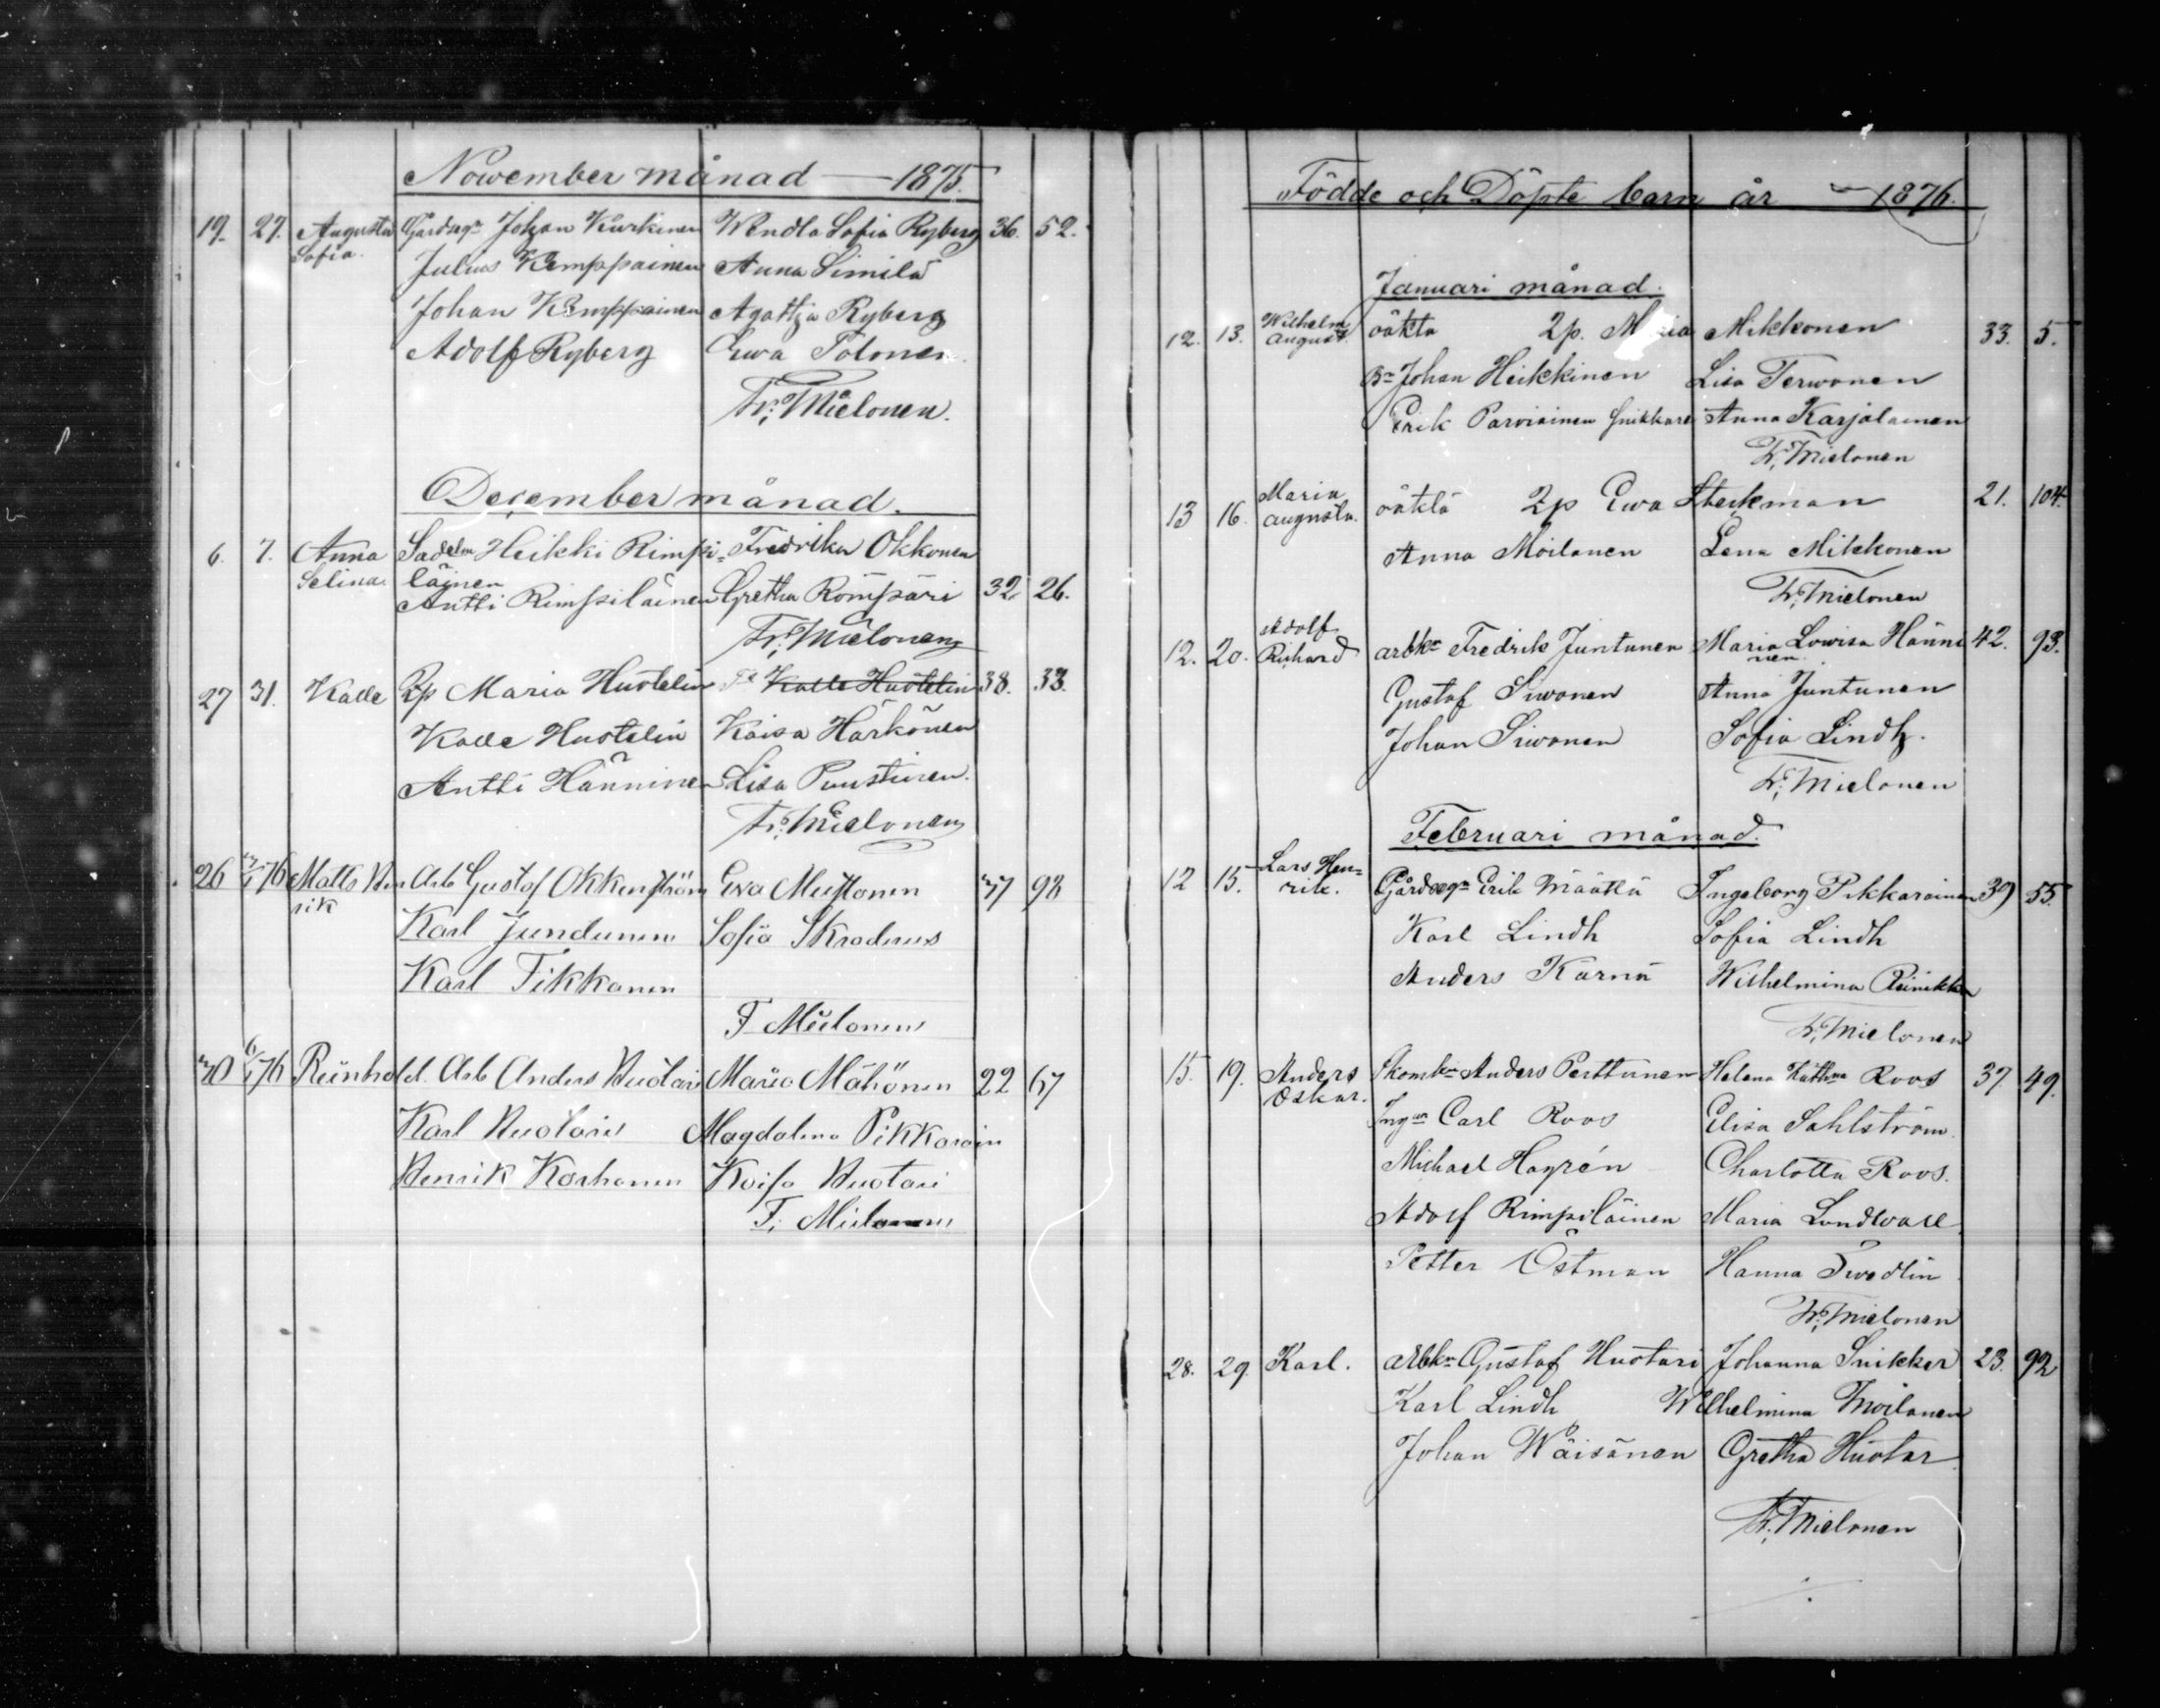 November månad — 1875.
19. 27. Augusta Gårdseg:n Johan Kurkinen Wendla Sofia Ryberg 36. 52.
Sofia. Julius Kemppainen Anna Similä
Johan Kemppainen Agatha Ryberg
Adolf Ryberg Ewa Tolonen
Fr. Mielonen.
December månad.
6. 7. Anna Sadelm Heikki Rimpi- Fredrika Okkonen
Selina. läinen
Antti Rimpiläinen Gretha Romppari 32. 26.
Fr. Mielonen
27 31. Kalle 2p Maria Huotelin Kalle Huotelin 38. 33.
Kalle Huotelin Kaisa Härkönen
Antti Hänninen Lisa Puustinen.
Fr. Mielonen
26 76 Matts Hen Arb Gustaf Okkenström Eva Mustonen 37 98
rik
Karl Jundunen Sofia Skraderus
Karl Tikkanen
F Mielonen
30 6/1 76 Reinhold. Arb Anders Huotari Maria Mähönen 22 67
Karl Huotari Magdalena Pikkarain
Henrik Korhonen Koisa Huotari
F. Mielonen
Födde och Döpte barn år — 1876.
Januari månad.
12. 13. Wilhelm oäkta 2p. Maria Mikkonen 33. 5.
August.
Johan Heikkinen Lisa Terwonen
Erik Parviainen Snikkare Anna Karjalainen
Fr. Mielonen
13 16. Maria oäkta 2p Ewa Steckman 21. 104.
Augusta.
Anna Moilanen Lena Mikkonen
Fr. Mielonen
Adolf
12. 20. Richard arbkr Fredrik Juntunen Maria Lowisa Hänni 42. 93.
nen
Gustaf Siwonen Anna Juntunen
Johan Siwonen Sofia Lindh.
Fr. Mielonen
Februari månad.
12 15. Lars Hen= Gårdseg:n Erik Määttä Ingeborg Pikkarainen 39 55.
rik.
Karl Lindh Sofia Lindh
Anders Kärnä Wilhelmina Reinikka
Fr. Mielonen
15. 19. Anders Skomkr Anders Perttunen Helena Kathna Roos 37 49.
Oskar.
Carl Roos Elisa Sahlström.
Michael Hagrén Charlotta Roos.
Adolf Rimpiläinen Maria Lundwall
Petter Östman Hanna Swedlin
Fr. Mielonen
28. 29. Karl. Arbkr Gustaf Huotari Johanna Snikker 23. 92
Karl Lindh Wilhelmina Moilanen
Johan Wäisänen Gretha Huotar
Fr. Mielonen